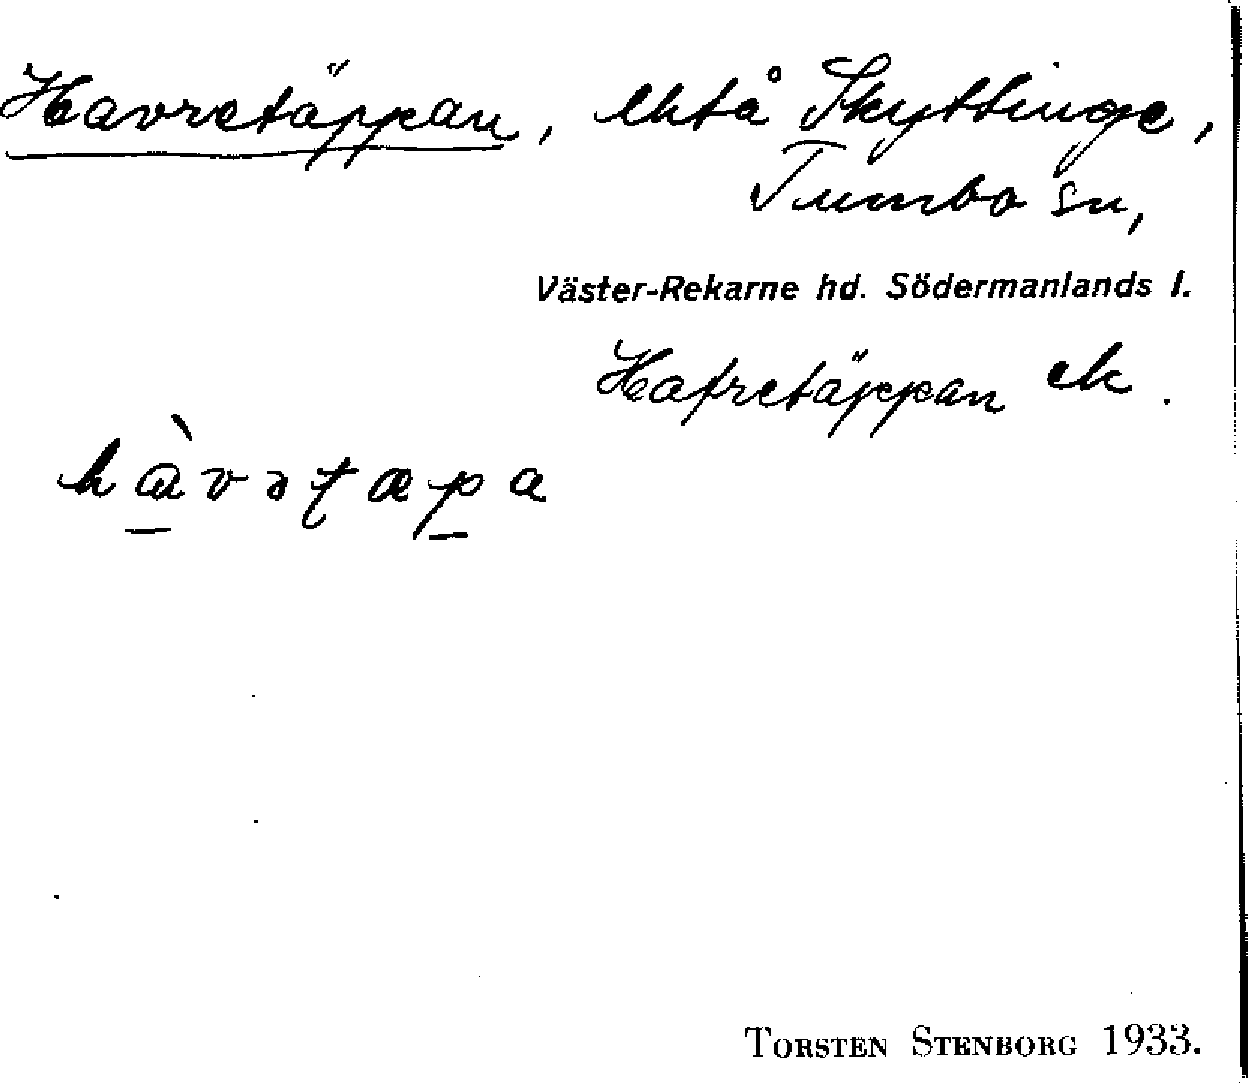 Havretäppan, lht å Skyttinge,
Tumbo sn,
Väster-Rekarne hd. Södermanlands l.
Hafretäppan ek.
hàvətæpa
TORSTEN STENBORG 1933.